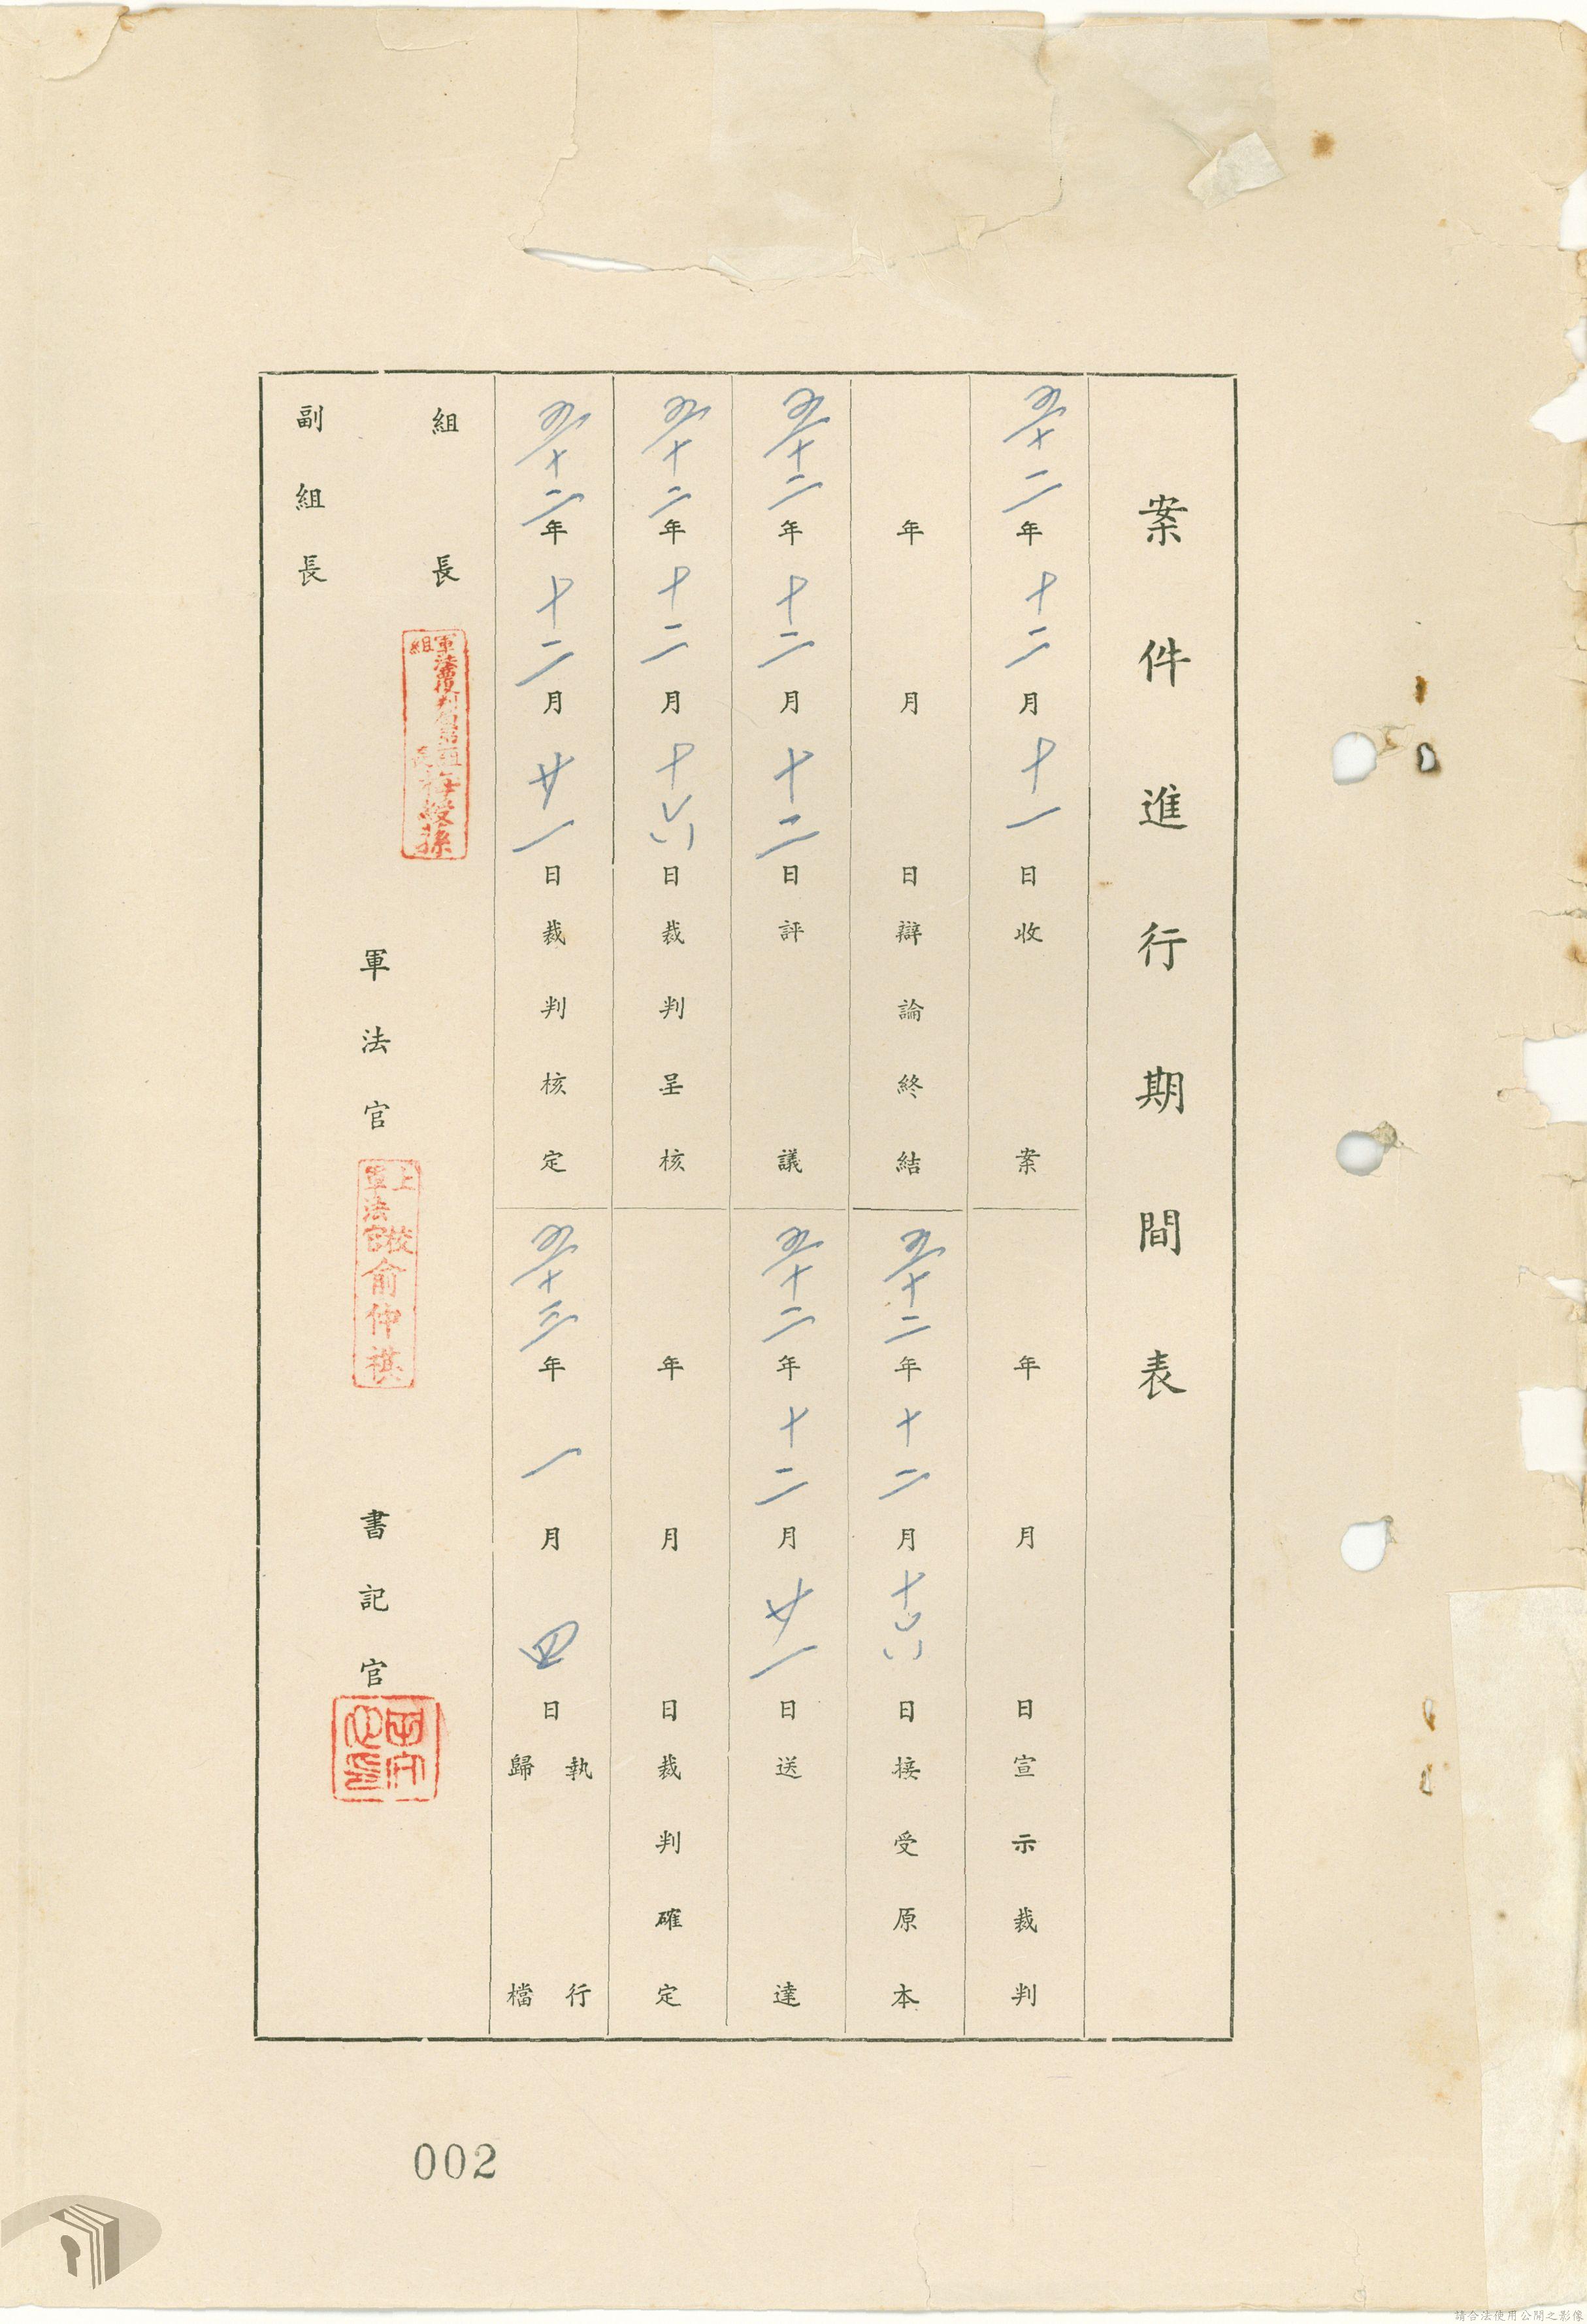 案件進行期間表
五十二年十二月十一日收案
年月日宣示裁判
年月日辯論終結
五十二年十二月十六日接受原本
五十二年十二月十二日評議
五十二年十二月廿一日送達
五十二年十二月十六日裁判呈核
年月日裁判確定
五十二年十二月廿一日裁判核定
五十三年一月四日執行歸檔
組長
梅綬蓀
副組長
軍法官
上校軍法官 俞仲祺
書記官
002
請合法使用公開之影像